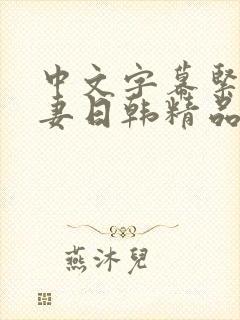 中文字幕緊
妻日韩精品
燕沐兒